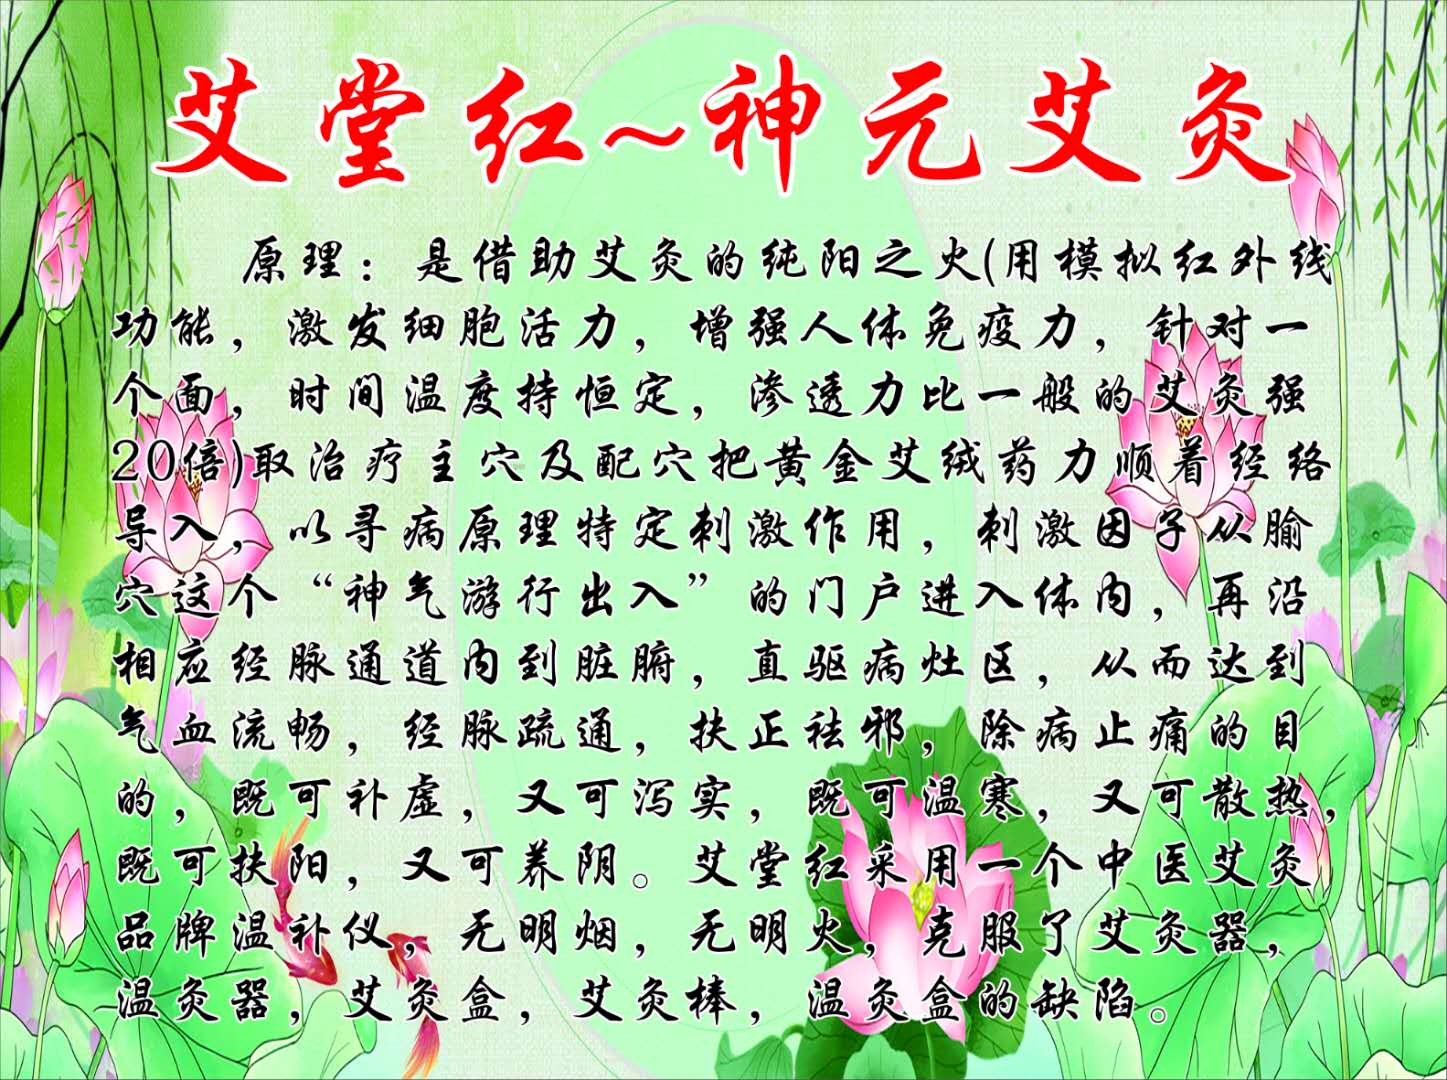 艾堂红~神元艾灸
原理：是借助艾灸的纯阳之火(用模拟红外线
功能，激发细胞活力，增强人体免疫力，针对一
个面，时间温度持恒定，渗透力比一般的艾灸强
20倍)取治疗主穴及配穴把黄金艾绒药力顺着经络
导入，以寻病原理特定刺激作用，刺激因子从腧
穴这个“神气游行出入”的门户进入体内，再沿
相应经脉通道内到脏腑，直驱病灶区，从而达到
气血流畅，经脉疏通，扶正祛邪，除病止痛的目
的，既可补虚，又可泻实，既可温寒，又可散热，
既可扶阳，又可养阴。艾堂红采用一个中医艾灸
品牌温补仪，无明烟，无明火，克服了艾灸器，
温灸器，艾灸盒，艾灸棒，温灸盒的缺陷。